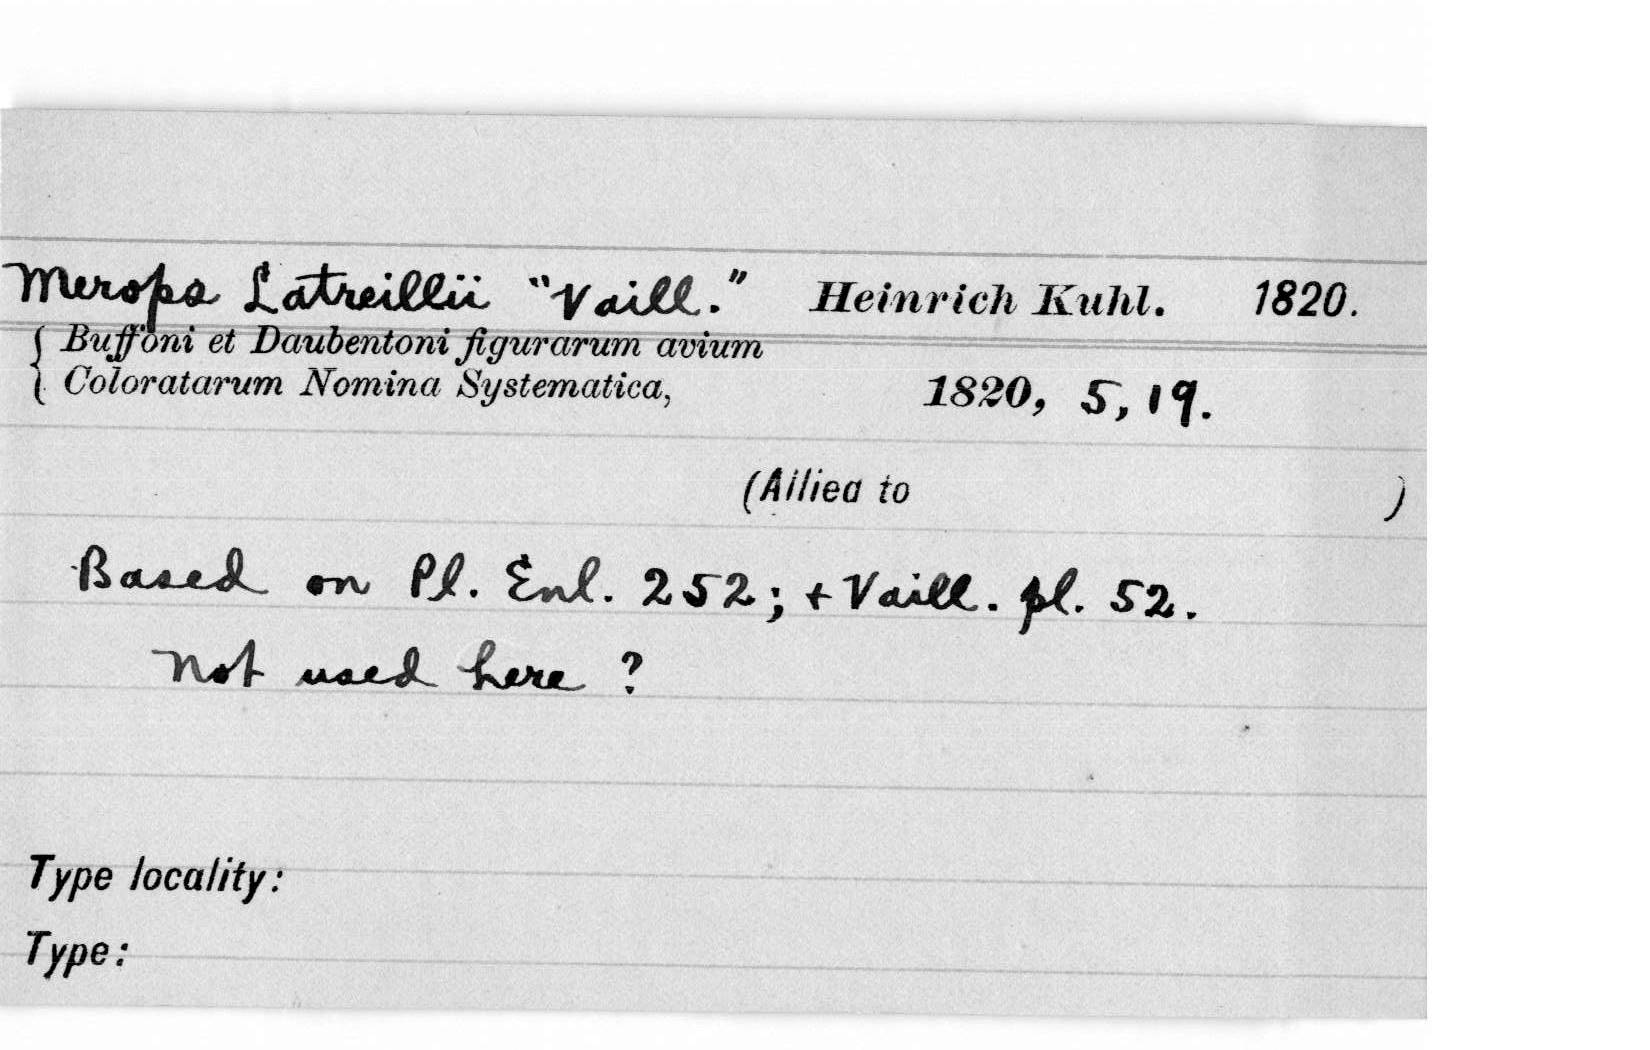 Merops Latreillii "Vaill." Heinrich Kuhl. 1820.
{ Buffoni et Daubentoni figurarum avium
{ Coloratarum Nomina Systematica, 1820, 5, 19.
(Allied to )
Based on Pl. Enl. 252; + Vaill. pl. 52.
Not used here ?
Type locality:
Type: